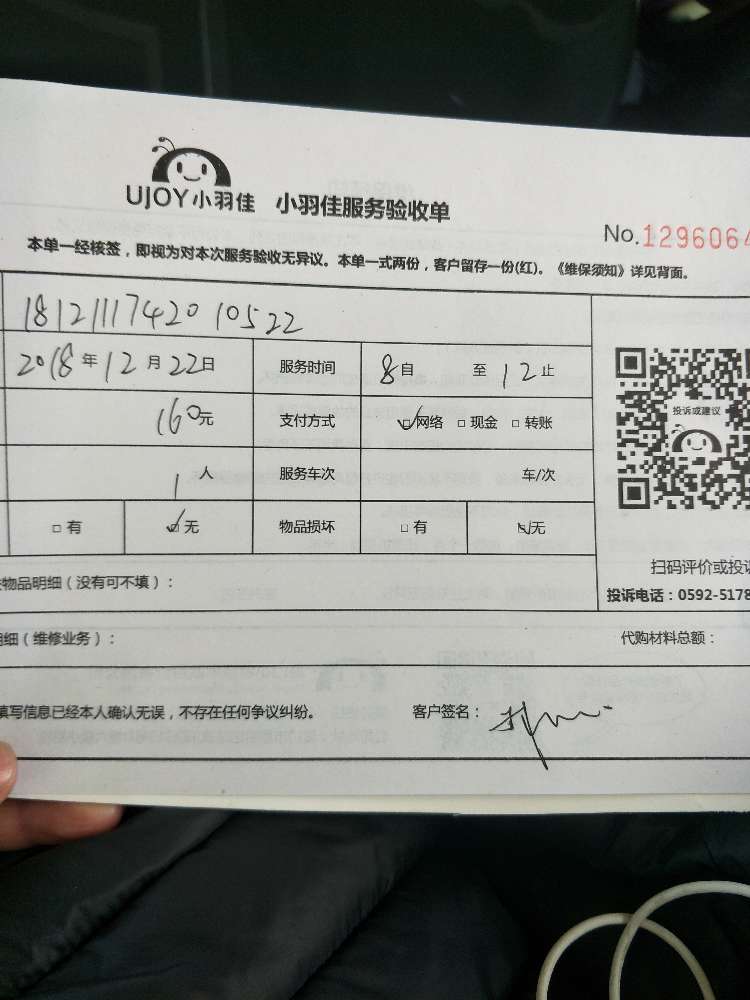 UJOY小羽佳 小羽佳服务验收单
No.1296064
本单一经核签，即视为对本次服务验收无异议。本单一式两份，客户留存一份(红)。《维保须知》详见背面。
18121117420 10522
2018年12月22日 服务时间 8自 至12止
160元 支付方式 网络 现金 转账
投诉或建议
1人 服务车次 车/次
有 无 物品损坏 有 无
扫码评价或投诉
物品明细（没有可不填）：
投诉电话：0592-5178
明细（维修业务）： 代购材料总额：
填写信息已经本人确认无误，不存在任何争议纠纷。 客户签名：